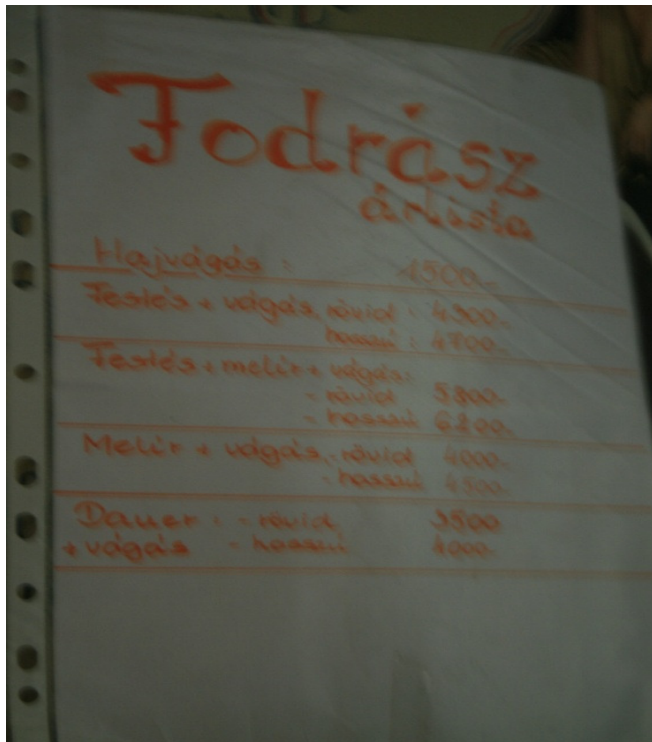 Fodrász
árlista
Hajvágás : 1500.-
Festés + vágás, rövid : 4300.-
hosszú : 4700.-
Festés + melír + vágás:
- rövid 5800.-
- hosszú 6200.-
Melír + vágás, - rövid 4000.-
- hosszú 4500.-
Dauer : - rövid 3500
+ vágás - hosszú 4000.-